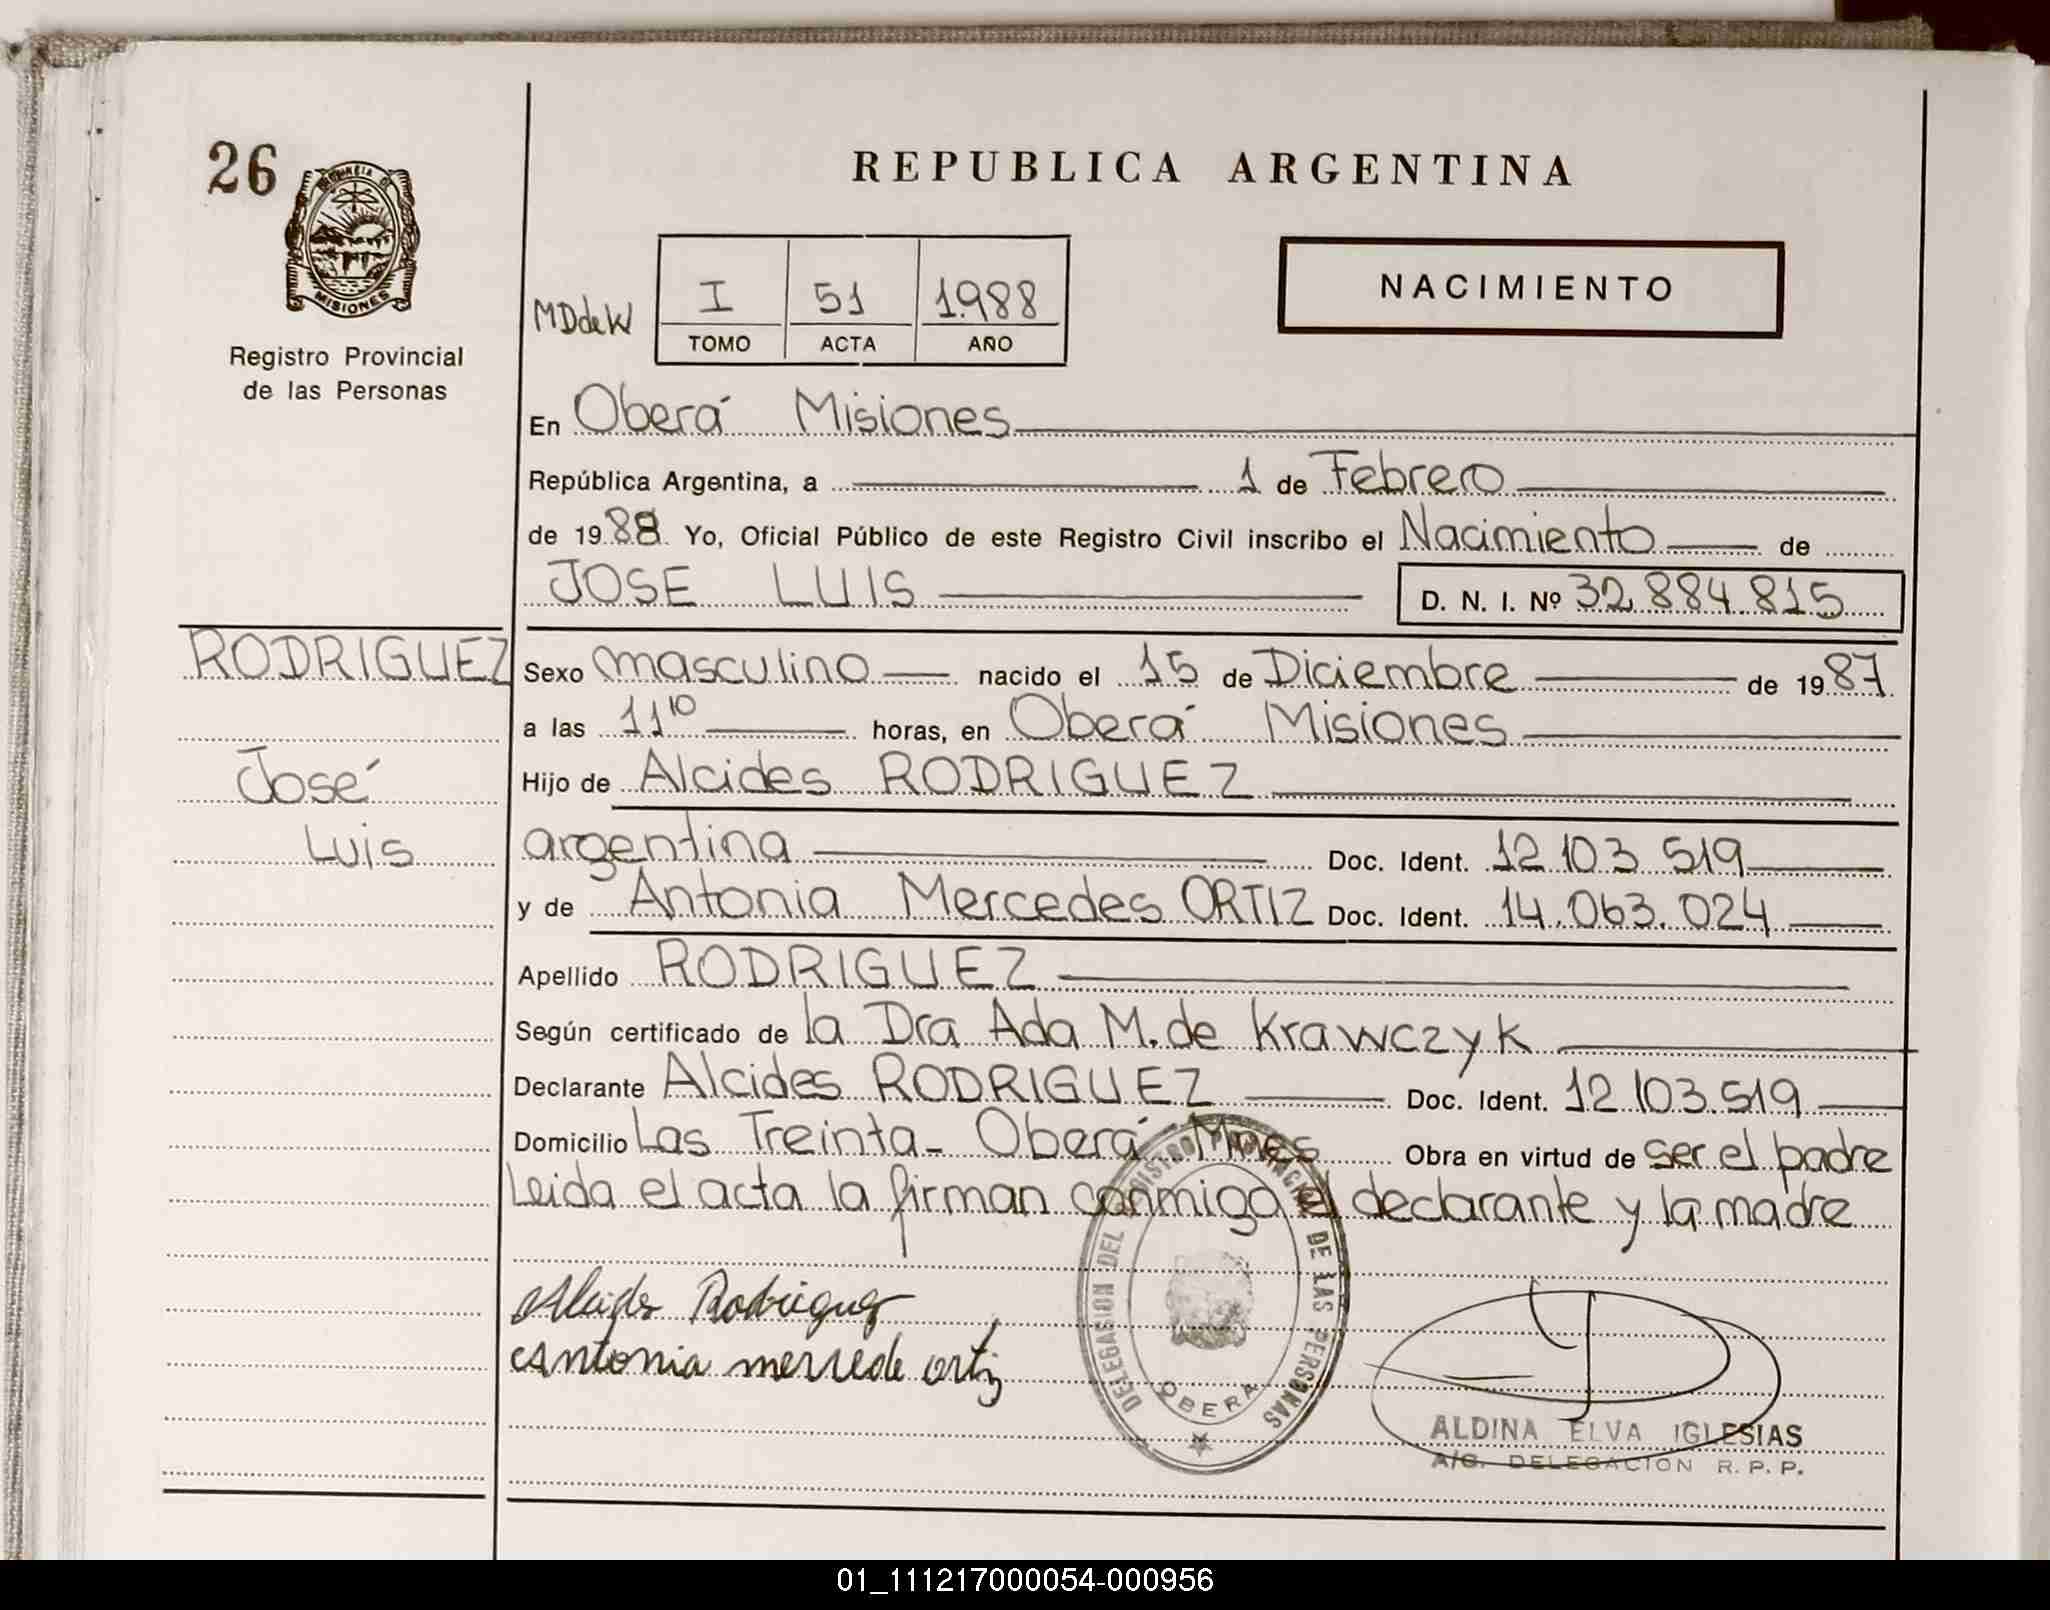 26
PROVINCIA DE
MISIONES
Registro Provincial
de las Personas
REPUBLICA ARGENTINA
NACIMIENTO
MDdeW
I 51 1988
TOMO ACTA AÑO
En Oberá Misiones
República Argentina, a 1 de Febrero
de 1988 Yo, Oficial Público de este Registro Civil inscribo el Nacimiento de
JOSE LUIS D. N. I. Nº 32.884.815
RODRIGUEZ
José
Luis
Sexo masculino nacido el 15 de Diciembre de 1987
a las 11 10 horas, en Oberá Misiones
Hijo de Alcides RODRIGUEZ
argentina Doc. Ident. 12.103.519
y de Antonia Mercedes ORTIZ Doc. Ident. 14.063.024
Apellido RODRIGUEZ
Según certificado de la Dra Ada M. de Krawczyk
Declarante Alcides RODRIGUEZ Doc. Ident. 12.103.519
Domicilio Las Treinta - Oberá Mnes Obra en virtud de ser el padre
Leida el acta la firman conmigo el declarante y la madre
Alcides Rodriguez
Antonia mercede ortiz
DELEGASION DEL REGISTRO PROVINCIAL DE LAS PERSONAS
OBERA
ALDINA ELVA IGLESIAS
A/C. DELEGACION R. P. P.
01_111217000054-000956